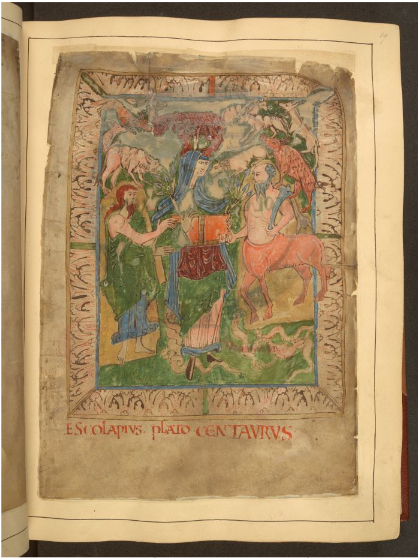 ESCOLAPIVS. PLATO CENTAVRVS.